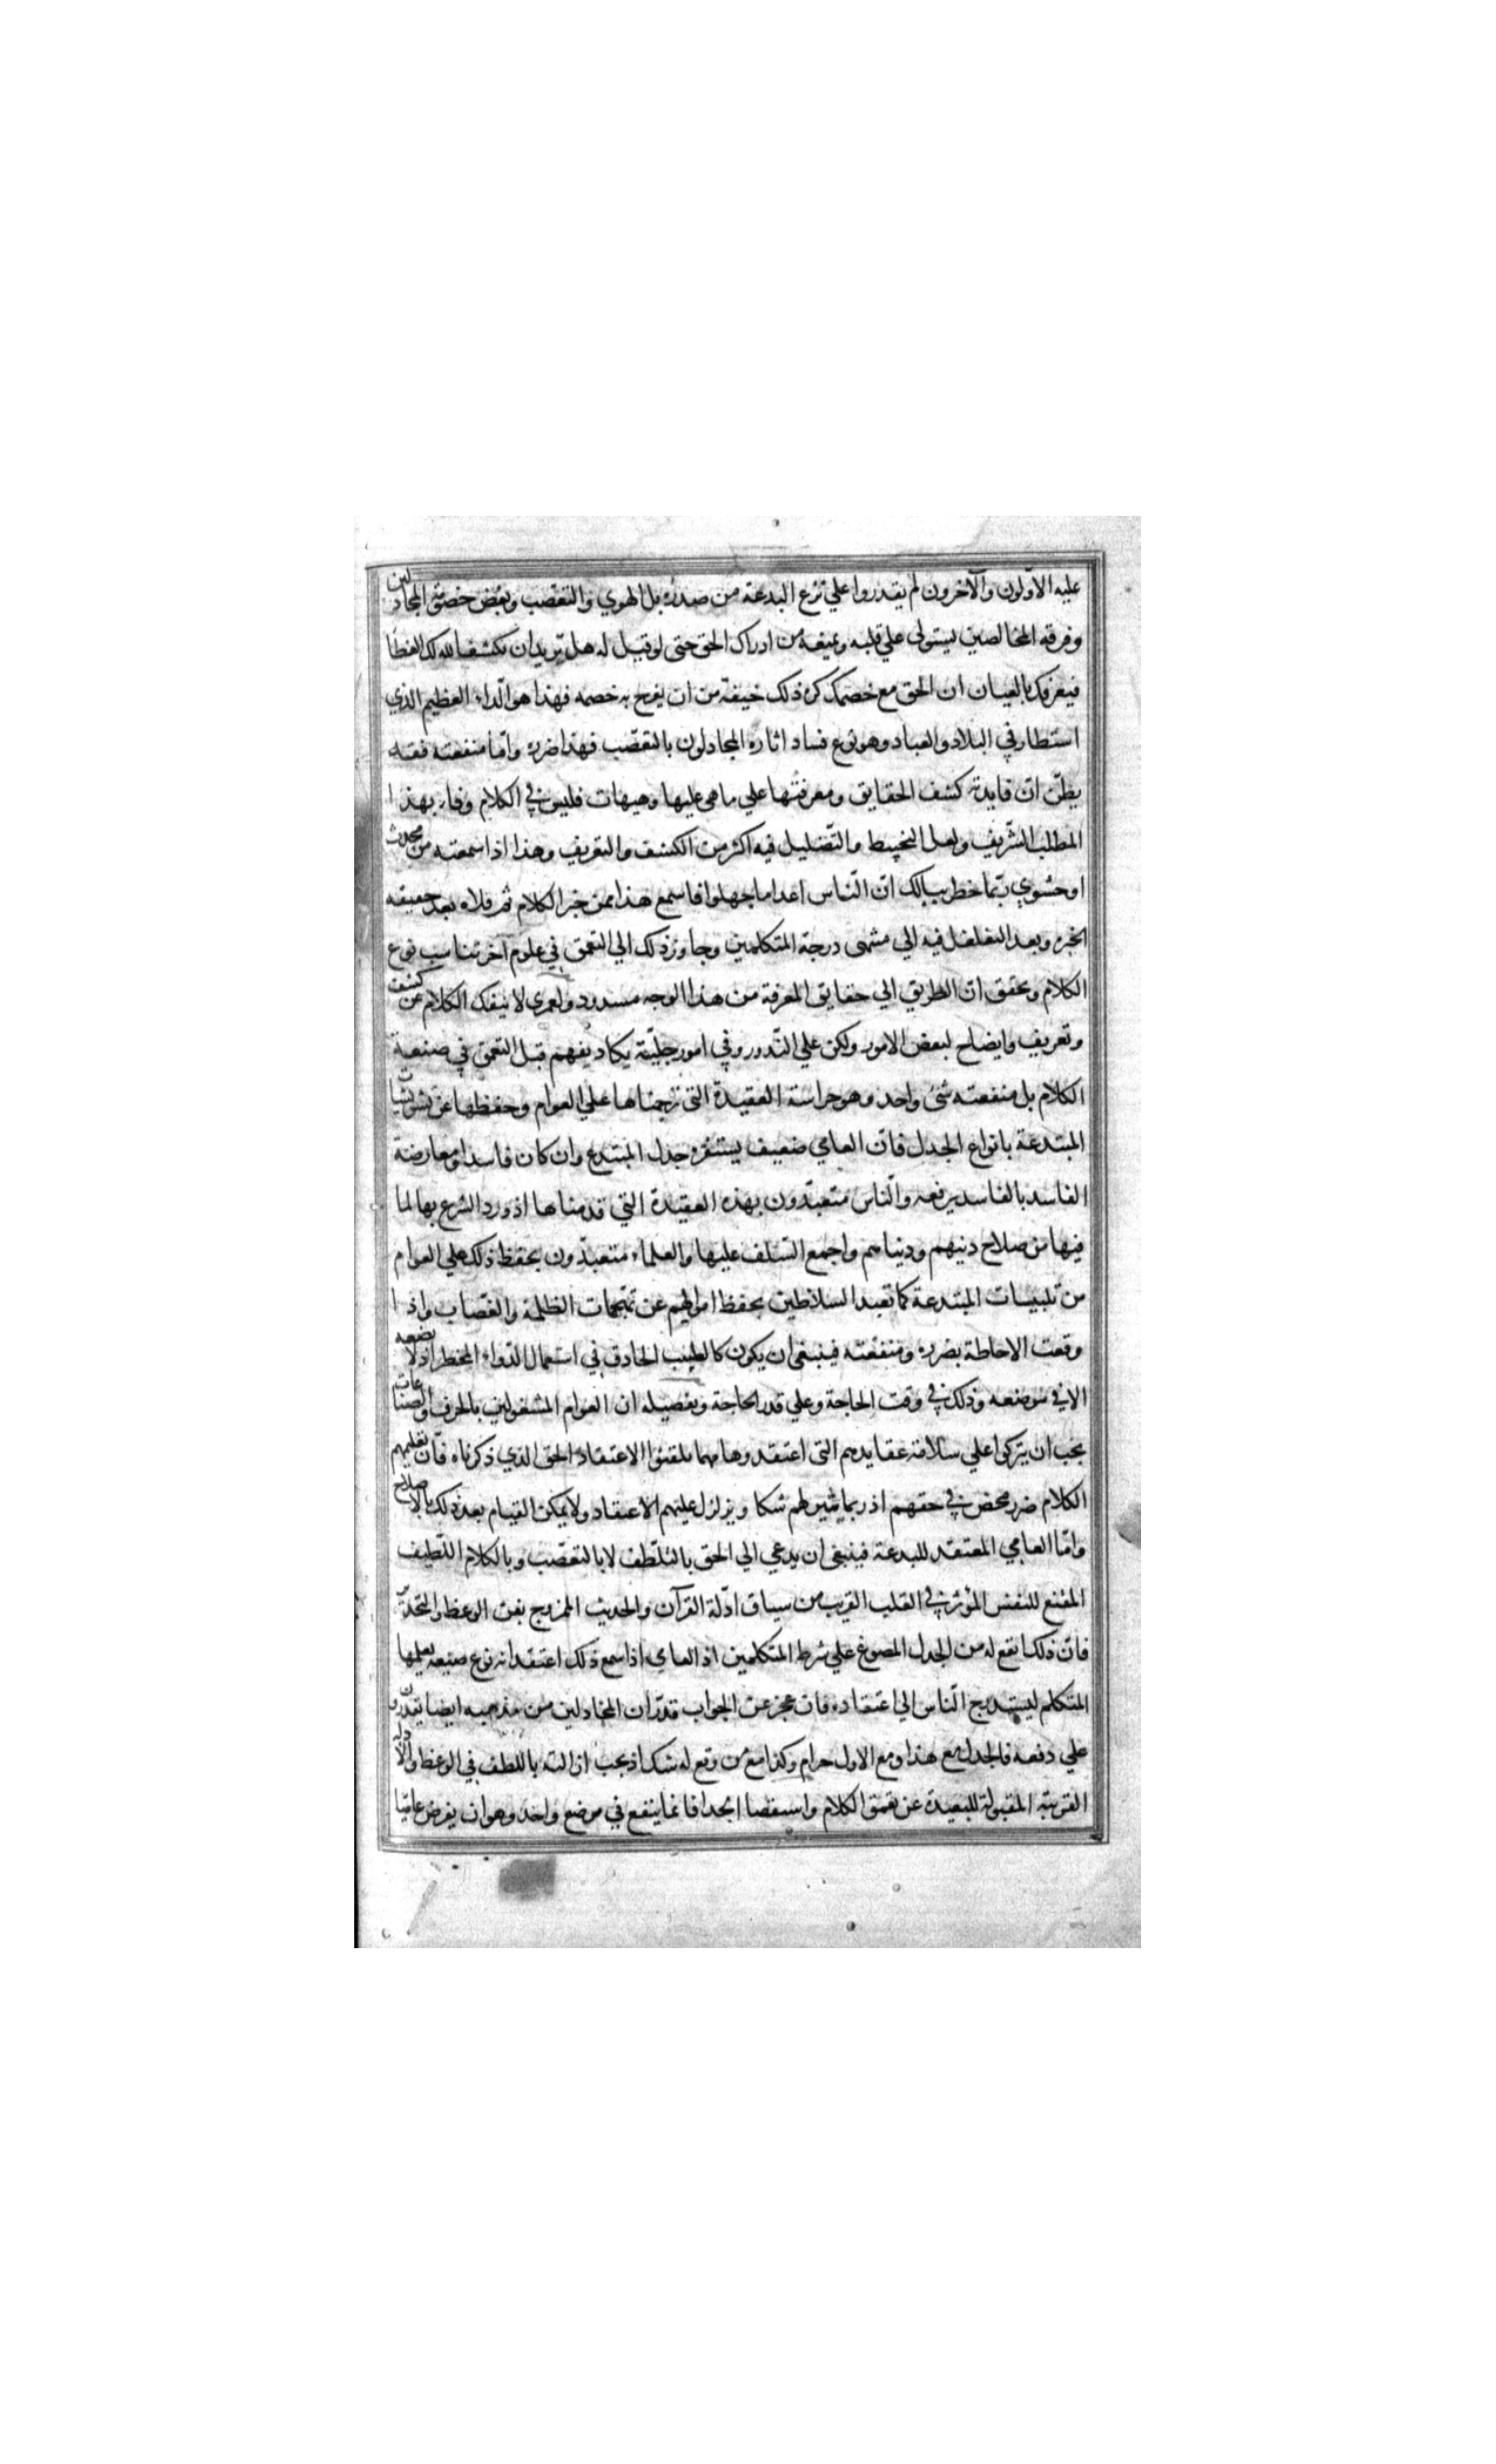 عليه الاوّلون والآخرون لم يقدروا علي نزع البدعة من صدره بل الهوي والتعصّب وبغض خصوم المجادلين
وفرقة المخالفين يستولى علي قلبه ويمنعه من ادراك الحق حتى لو قيل له هل تريد ان يكشف الله لك الغطا
فيعرفك بالعيان ان الحق مع خصمك كره ذلك خيفة من ان يفرح به خصمه فهذا هو الّداء العظيم الذي
استطار في البلاد والعباد وهو نوع فساد اثاره المجادلون بالتعصّب فهذا ضرره وامّا منفعته فقد
يظنّ انّ فايدته كشف الحقايق ومعرفتها علي ماهى عليها وهيهات فليس في الكلام وفاء بهذا
المطلب الشّريف ولعل التخبيط والتّضليل فيه اكثر من الكشف والتعريف وهذا اذا سمعته من محدث
او حشوي ربّما خطر ببالك انّ النّاس اعدا ما جهلوا فاسمع هذا ممن خبر الكلام ثم قلاه بعد حقيقة
الخبرة وبعد التغلغل فيه الي منتهى درجة المتكلمين وجاوز ذلك الي التعمق في علوم آخر تناسب نوع
الكلام وتحقق انّ الطريق الي حقايق المعرفة من هذا الوجه مسدود ولعمرى لا ينفك الكلام عن كشف
وتعريف وايضاح لبعض الامور ولكن علي النّدور وفي امور جليّة يكاد يفهم قبل التعمق في صنعة
الكلام بل منفعته شئ واحد وهو حراسة العقيدة التى ترجمناها علي العوام وحفظها عن تشويشات
المبتدعة بانواع الجدل فانّ العامي ضعيف يستفزه جدل المبتدع وان كان فاسدا ومعارضة
الفاسد بالفاسد يرفعه والنّاس متعبّدون بهذه العقيدة التي قدمناها اذ ورد الشرع بها لما
فيها من صلاح دينهم ودنياهم واجمع السّلف عليها والعلماء متعبّدون بحفظ ذلك علي العوام
من تلبيسات المبتدعة كما تعبد السلاطين بحفظ اموالهم عن تهجمات الظلمة والغصّاب واذا
وقعت الاحاطة بضرره ومنفعته فينبغى ان يكون كالطبيب الحاذق في استعمال الدّواء المخطر اذ لا يضعه
الا في موضعه وذلك في وقت الحاجة وعلي قدر الحاجة وتفصيله ان العوام المشغولين بالحرف والصناعات
يجب ان يتركوا علي سلامة عقايدهم التى اعتقدوها مهما تلقنوا الاعتقاد الحق الذي ذكرناه فانّ تعليمهم
الكلام ضرر محض في حقهم اذ ربما يثير لهم شكا ويزلزل عليهم الاعتقاد ولا يمكن القيام بعد ذلك بالاصلاح
وامّا العامي المعتقد للبدعة فينبغى ان يدعي الي الحق بالتلطّف لا بالتعصّب وبالكلام اللّطيف
المقنع للنفس المؤثر في القلب القريب من سياق ادلّة القرآن والحديث الممزوج بفن الوعظ والتحذير
فانّ ذلك انفع له من الجدل المصوغ علي شرط المتكلمين اذ العامي اذا سمع ذلك اعتقد انه نوع صنعة يعلمها
المتكلم ليستدرج النّاس الي اعتقاده فان عجز عن الجواب قدّر ان المجادلين من مذهبه ايضا يقدرون
علي دفعه فالجدل مع هذا ومع الاول حرام وكذا مع من وقع له شك اذ يجب ازالته باللطف في الوعظ والادلة
القريبة المقبولة البعيدة عن تعمق الكلام واستقصا الجدل فانما ينفع في موضع واحد وهو ان يفرض عاميّا